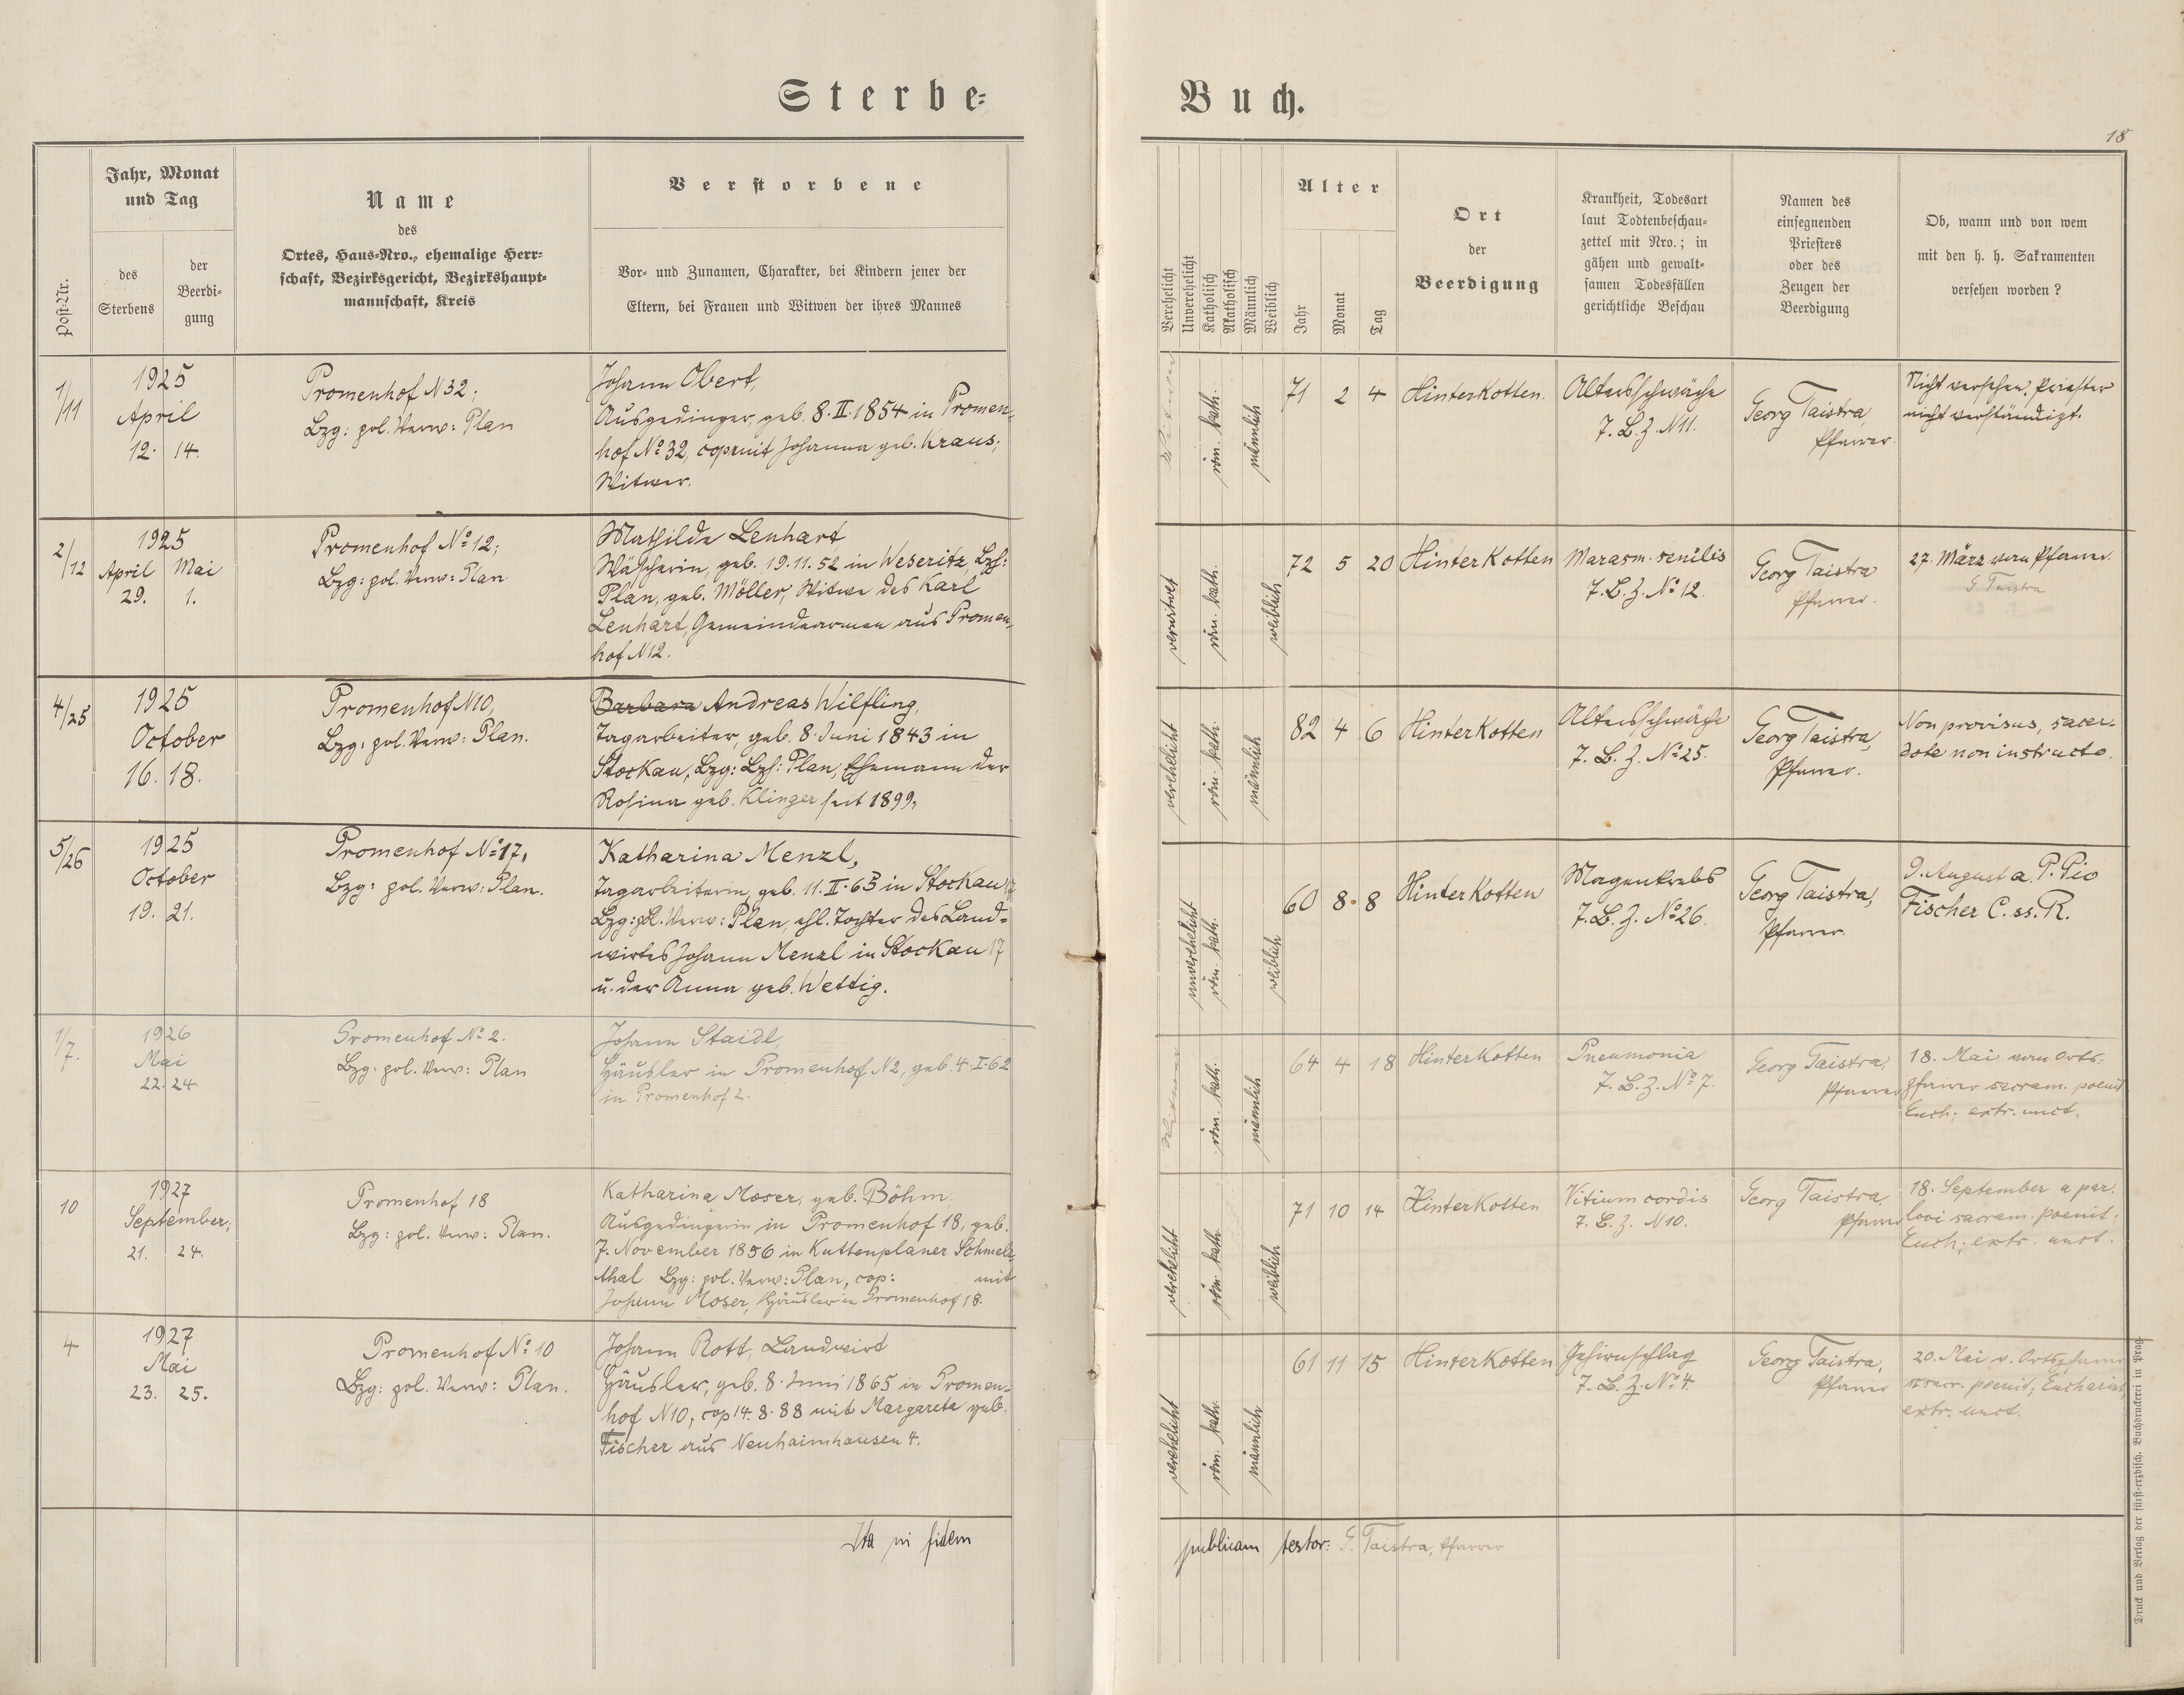 Sterbe-
Jahr, Monat
und Tag
Name
des
Ortes, Haus-Nro., ehemalige Herr-
schaft, Bezirksgericht, Bezirkshaupt-
mannschaft, Kreis
Verstorbene
Vor- und Zunamen, Charakter, bei Kindern jener der
Eltern, bei Frauen und Witwen der ihres Mannes
Post-Nr.
des
Sterbens
der
Beerdi-
gung
1/11
1925
April
12. 14.
Promenhof N 32;
Bzg: pol. Verw: Plan
Johann Obert,
Ausgedinger, geb. 8. II. 1854 in Promen-
hof No 32, copuit Johanna geb. Kraus,
Witwer.
2/12
1925
April Mai
29. 1.
Promenhof No 12;
Bzg: pol. Verw: Plan
Mathilde Lenhart
Wäscherin, geb. 19. 11. 52 in Weseritz, Bzh:
Plan, geb. Möller, Witwe des Karl
Lenhart, Gemeindearmen aus Promen-
hof N 12.
4/25
1925
October
16. 18.
Promenhof N 10,
Bzg: pol. Verw: Plan.
Barbara Andreas Wilfling,
Tagarbeiter, geb. 8. Juni 1843 in
Stockau, Bzg: Bzh: Plan, Ehemann der
Rosina geb. Klinger seit 1899.
5/26
1925
October
19. 21.
Promenhof No 17,
Bzg: pol. Verw: Plan.
Katharina Menzl,
Tagarbeiterin, geb. 11. II. 65 in Stockau 17
Bzg: pol. Verw: Plan, ehl. Tochter des Land-
wirtes Johann Menzl in Stockau 17
u. der Anna geb. Wettig.
1/7.
1926
Mai
22. 24
Promenhof No 2.
Bzg: pol. Verw: Plan
Johann Staidl,
Häusler in Promenhof N 2, geb. 4. I. 62
in Promenhof 2.
10
1927
September,
21. 24.
Promenhof 18
Bzg: pol. Verw: Plan.
Katharina Moser, geb. Böhm.
Ausgedingerin, in Promenhof 18, geb.
7. November 1856 in Kuttenplaner Schmelz-
thal Bzg: pol. Verw: Plan, cop: mit
Johann Moser, Häusler in Promenhof 18.
4
1927
Mai
23. 25.
Promenhof No 10
Bzg: pol. Verw: Plan.
Johann Rott, Landwirt
Häusler, geb. 8. Juni 1865 in Promen-
hof N 10, cop 14. 8. 88 mit Margareta geb.
Fischer aus Neuhaimhausen 4.
Ita in fidem
Buch.
18
Verehelicht
Unverehelicht
Katholisch
Akatholisch
Männlich
Weiblich
Alter
Jahr
Monat
Tag
Ort
der
Beerdigung
Krankheit, Todesart
laut Todtenbeschau-
zettel mit Nro.; in
gähen und gewalt-
samen Todesfällen
gerichtliche Beschau
Namen des
einsegnenden
Priesters
oder des
Zeugen der
Beerdigung
Ob, wann und von wem
mit den h. h. Sakramenten
versehen worden?
Witwer
röm. kath.
männlich
71 2 4
Hinterkotten.
Altersschwäche
7. B. Z. N 11.
Georg Taistra,
Pfarrer.
Nicht versehen. Priester
nicht verständigt.
verwitwet
röm. kath.
weiblich
72 5 20
Hinterkotten
Marasm. senilis
7. B. Z. No 12.
Georg Taistra
Pfarrer.
27. März vom Pfarrer
G. Taistra
verehelicht
röm. kath.
männlich
82 4 6
Hinterkotten
Altersschwäche
7. B. Z. No 25.
Georg Taistra,
Pfarrer.
Non provisus, sacer-
dote non instructo.
unverehelicht
röm. kath.
weiblich
60 8. 8
Hinterkotten
Magenkrebs
7. B. Z. No 26.
Georg Taistra,
Pfarrer.
9. August a. P. Pio
Fischer C. ss. R.
Witwer
röm. kath.
männlich
64 4 18
Hinterkotten
Pneumonia
7. B. Z. No 7.
Georg Taistra,
Pfarrer
18. Mai vom Orts-
pfarrer sacram. poenit
Euch; extr. unct.
verehelicht
röm. kath.
weiblich
71 10 14
Hinterkotten
Vitium cordis
7. B. Z. N 10.
Georg Taistra
Pfarrer
18. September a par.
loci sacram. poenit:
Euch; extr. unct.
verehelicht
röm. kath.
männlich
61 11 15
Hinterkotten
Gehirnschlag
7. B. Z. No 4.
Georg Taistra,
Pfarrer
20. Mai v. Ortspfarrer
sacr. poenit; Eucharist,
extr. unct.
publicam testor: G. Taistra, Pfarrer
Druck und Verlag der fürst-erzbisch. Buchdruckerei in Prag.